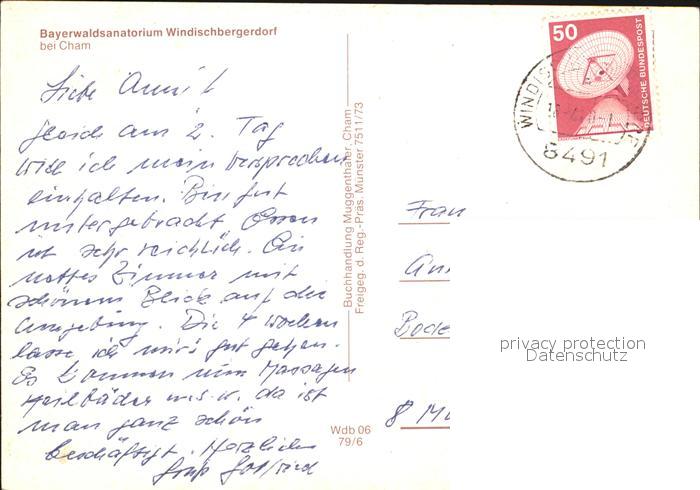 Bayerwaldsanatorium Windischbergerdorf
bei Cham
Liebe
gleich am 2. Tag
will ich mein Versprechen
einhalten. Bin gut
untergebracht, Essen
ist sehr reichlich. Ein
nettes Zimmer mit
schönem Blick auf die
Umgebung. Die 4 Wochen
lasse ich mir's gut gehen.
Es kommen nun Massagen
Heilbäder u.s.w. da ist
man ganz schön
beschäftigt. Herzlichen
Gruß Gottfried
Buchhandlung Muggenthaler, Cham
Freigeg. d. Reg.-Präs. Münster 7511/73
Wdb 06
79/6
50
DEUTSCHE BUNDESPOST
WINDIS
8491
Frau
Bode
8 Mü
privacy protection
Datenschutz